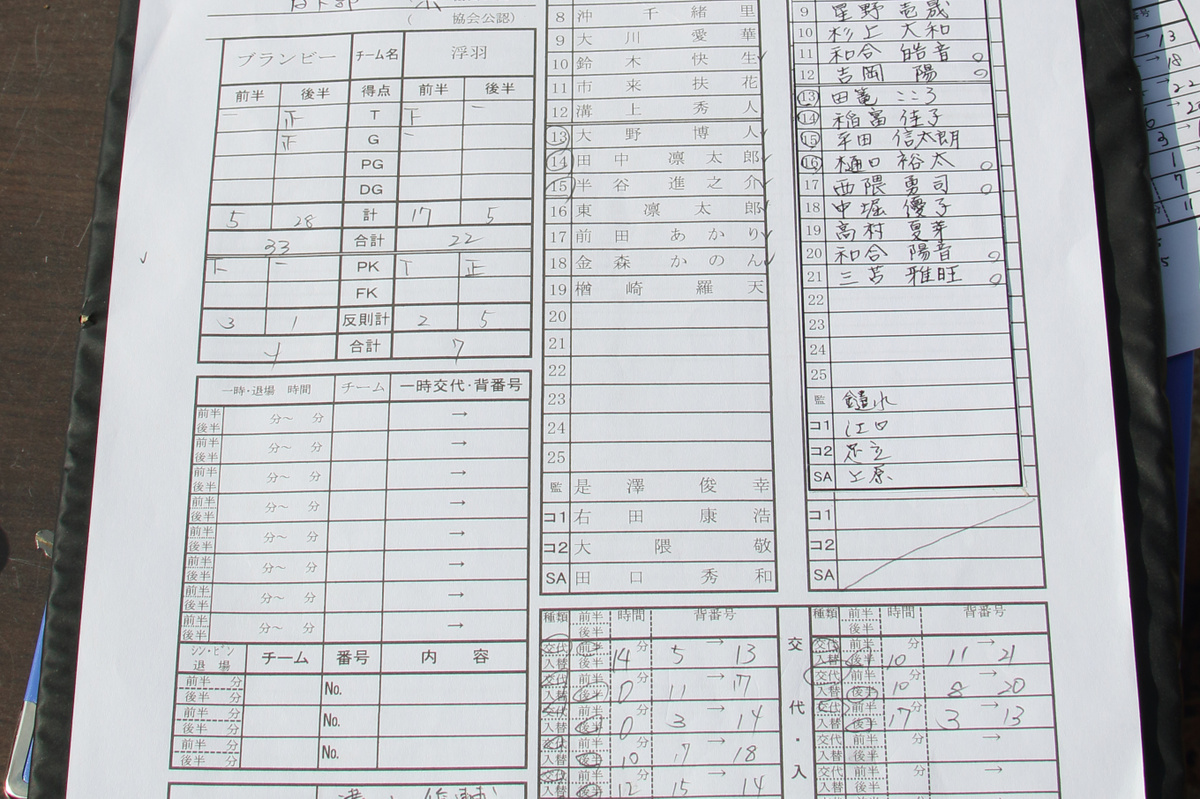 (　　協会公認)
ブランビー　チーム名　浮羽
前半　後半　得点　前半　後半
一　正　T　下　一
正　G　一
PG
DG
5　28　計　17　5
33　合計　22
下　一　PK　T　正
FK
3　1　反則計　2　5
4　合計　7
一時・退場　時間　チーム　一時交代・背番号
前半　分～　分　→
後半
前半　分～　分　→
後半
前半　分～　分　→
後半
前半　分～　分　→
後半
前半　分～　分　→
後半
前半　分～　分　→
後半
前半　分～　分　→
後半
前半　分～　分　→
後半
シン・ビン　チーム　番号　内　容
退場
前半　分　No.
後半　分
前半　分　No.
後半　分
前半　分　No.
後半　分
8　沖　千緒里
9　大川　愛華
10　鈴木　快生
11　市来　扶花
12　溝上　秀人
13　大野　博人
14　田中　凛太郎
15　半谷　進之介
16　東　凛太郎
17　前田　あかり
18　金森　かのん
19　楢崎　羅天
20
21
22
23
24
25
監　是澤　俊幸
コ1　右田　康浩
コ2　大隈　敬
SA　田口　秀和
9　星野　壱晟
10　杉上　大和
11　和合　皓音
12　吉岡　陽
13　田篭　こころ
14　稲富　佳子
15　牟田　信太朗
16　樋口　裕太
17　西隈　勇司
18　中堀　優子
19　高村　夏芽
20　和合　陽音
21　三苫　雅旺
22
23
24
25
監　鑓水
コ1　江口
コ2　足立
SA　上原
コ1
コ2
SA
種類　前半　時間　背番号
後半
交代　前半　分　→
入替　後半　14　5　13
交代　前半　分　→
入替　後半　0　11　17
交代　前半　分　→
入替　後半　0　3　14
交代　前半　分　→
入替　後半　10　7　18
交代　前半　分　→
入替　後半　12　15　14
交代・入
種類　前半　時間　背番号
後半
交代　前半　分　→
入替　後半　10　11　21
交代　前半　分　→
入替　後半　10　8　20
交代　前半　分　→
入替　後半　17　3　13
交代　前半　分　→
入替　後半
交代　前半　分　→
入替　後半